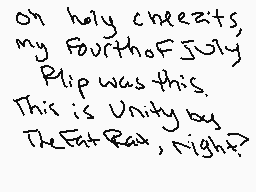 oh holy cheezits,
my FourthoF July
Flip was this.
This is Unity by
TheFatRat, right?